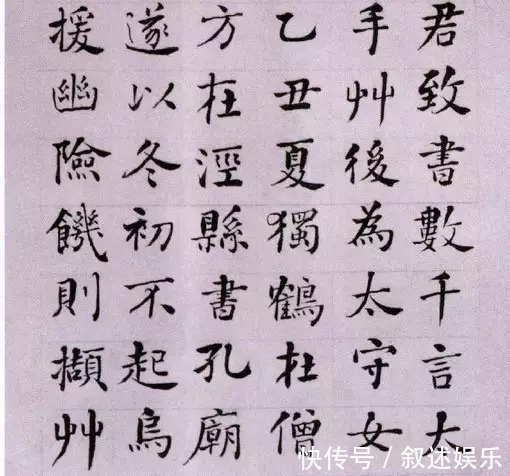 君致書數千言大
手艸後為太守女
乙丑夏獨鶴杜僧
方在涇縣書孔廟
遂以冬初不起烏
援幽險饑則擷艸
快传号 / 叙述娱乐